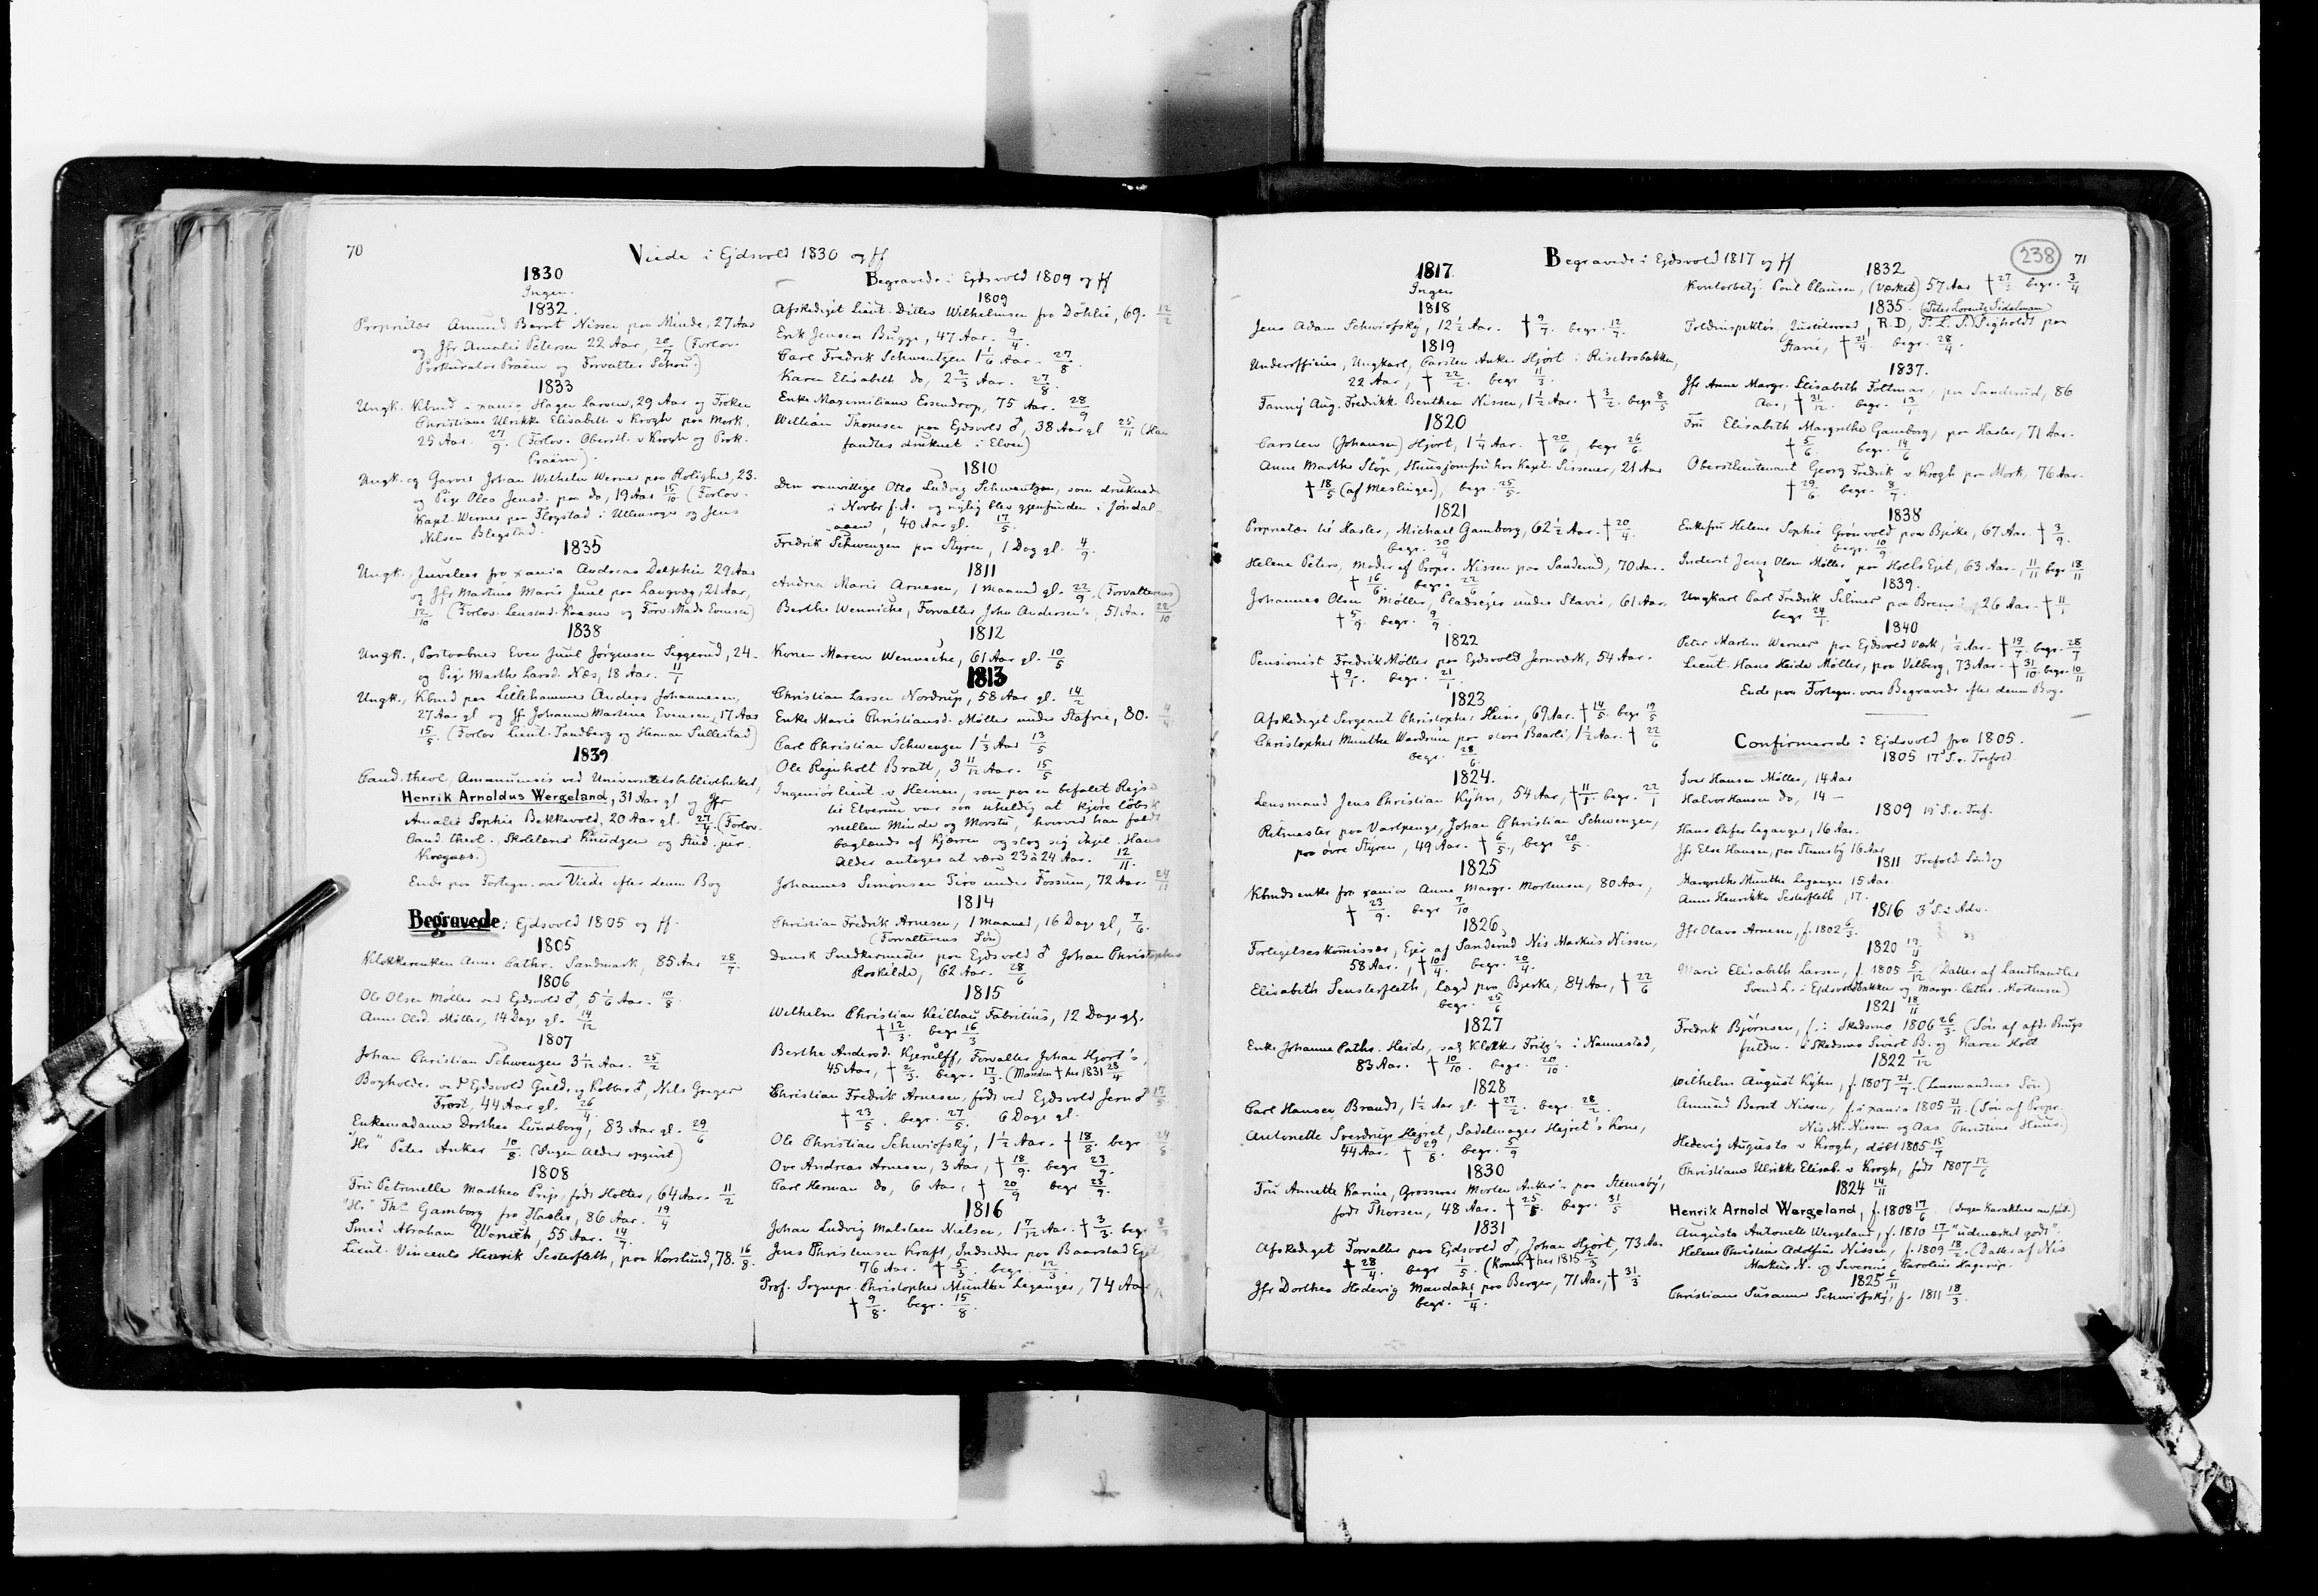 70
Viede i Ejdsvold 1830 og ff
1830
Ingen.
1832.
Proprietær Amund Bernt Nissen paa Minde, 27 Aar
og Jfr Amalie Petersen 22 Aar, 20/7 (Forlov.
Prokurator Praëm og Forvalter Schou.)
1833
Ungk. Kbmd i Xania Hagen Larsen, 29 Aar og Frøken
Christiane Ulrikke Elisabeth v Krogh paa Mork,
25 Aar. 27/9. (Forlov. Oberstl. v Krogh og Prok.
Praëm).
Ungk. og Garver Johan Wilhelm Werner paa Rolighed, 23.
og Pige Olea Jensd. paa do, 19 Aar 15/10 (Forlov.
Kapt. Werner paa Flogstad i Ullensager og Jens
Nilsen Blegstad.
1835
Ungk., Juveleer fra Xania Andreas Delphin 29 Aar
og Jfr Martine Marie Juul paa Langvæg, 21 Aar,
12/10 (Forlov. Lensmd. Kaasen og Forv. Mads Evensen)
1838
Ungk., Postaabner Even Juul Jørgensen Siggerud, 24.
og Pige Marthe Larsd. Næs, 18 Aar. 11/1
Ungk., Kbmd paa Lillehammer Anders Johannesen,
27 Aar gl og Jfr Johanne Martine Evensen, 17 Aar
15/5. (Forlov Lieut. Sandberg og Herman Sullestad)
1839
Cand. theol, Amanuensis ved Universitetsbibliotheket,
Henrik Arnoldus Wergeland, 31 Aar gl og Jfr
Amalie Sophie Bekkevold, 20 Aar gl. 27/4. (Forlov.
Cand. theol. Skolelærer Knudzen og Stud. jur.
Kragnæs.)
Ende paa Fortegn. over Viede efter denne Bog
Begravede i Ejdsvold 1805 og ff.
1805
Klokkerenken Anne Cathr. Sandmark, 85 Aar 28/7.
1806
Ole Olsen Møller ved Ejdsvold ♂, 5 1/6 Aar. 10/8
Anne Olsd. Møller, 14 Dage gl. 14/12
1807
Johan Christian Schwenzen 3 1/12 Aar. 25/2
Bogholder ved Ejdsvold Guld og Kobber ♂, Nils Greger
Frost, 44 Aar gl. 26/4.
Enkemadame Dorthea Lundborg, 83 Aar gl. 29/6
"Hr" Peter Anker 10/8. (Ingen Alder opgivet)
1808
Fru Petronelle Marthea Prijs, født Holter, 64 Aar. 11/2
"Hr." Ths Gamborg fra Hasler, 86 Aar. 19/4
Smed Abraham Wenuch, 55 Aar. 14/7.
Lieut. Vincents Henrik Sesterfleth, paa Korslund, 78. 16/8.
Begravede i Ejdsvold 1809 og ff
1809
Afskediget Lieut. Ditlev Wilhelmsen fra Döhlie, 69. 12/2
Erik Jensen Bugge, 47 Aar. 9/4.
Carl Fredrik Schwentzen 1 1/6 Aar. 27/8.
Karen Elisabeth do, 2 2/3 Aar. 27/8.
Enke Maximiliane Essendrop, 75 Aar. 28/9
William Thomesen paa Ejdsvold ♂, 38 Aar gl 25/11 (Han
fandtes druknet i Elven)
1810
Den vanvittige Otto Ludvig Schwentzen, som druknede
i Novbr f. A. og nylig blev gjenfunden i Jøndal-
aaen, 40 Aar gl. 17/5.
Fredrik Schwenzen paa Styren, 1 Dag gl. 4/9.
1811
Andrea Marie Arnesen, 1 Maaned gl. 22/9. (Forvalterens)
Berthe Wenniche, Forvalter John Andersen's, 51 Aar 22/10
1812
Konen Maren Wenniche, 61 Aar gl. 10/5
1813
Christian Larsen Nordrup, 58 Aar gl. 14/2
Enke Marie Christiansd. Møller under Stafrie, 80.
Carl Christian Schwenzen 1 1/3 Aar 13/5
Ole Rejnholt Bratt, 3 11/12 Aar. 15/5
Ingeniörlieut. v Heinen, som paa en befalet Rejse
til Elverum var saa uheldig at kjøre løbsk
mellem Minde og Morstu, hvorved han faldt
baglænds af Kjærren og slog sig ihjel. Hans
Alder antoges at være 23 à 24 Aar. 12/11.
Johannes Simonsen Tiro under Fossum, 72 Aar. 24/11
1814
Christian Fredrik Arnesen, 1 Maaned, 16 Dage gl, 7/6.
(Forvalterens Søn)
Dansk Snedkersvend paa Ejdsvold ♂ Johan Christopher
Roskilde, 62 Aar. 28/6
1815
Wilhelm Christian Keilhau Fabritius, 12 Dage gl.
† 12/3. begr 16/3
Berthe Andersd. Kjerulff, Forvalter Johan Hjort's,
45 Aar, † 2/3. begr. 17/3. (Manden † her 1831 28/4
Christian Fredrik Arnesen, født ved Ejdsvold Jern ♂ 17/5
† 23/5. begr. 27/5. 6 Dage gl.
Ole Christian Schwiofsky, 1 1/2 Aar. † 18/8. begr 24/8
Ove Andreas Arnesen, 3 Aar, † 18/9. begr 23/9.
Carl Herman do, 6 Aar, † 20/9 begr 23/9.
1816
Johan Ludvig Malstaen Nielsen, 1 7/12 Aar. † 3/3. begr
Jens Christensen Kraft, Indsidder paa Baarstad Ejet
76 Aar. † 5/3. begr. 12/3.
Prof. Sognepr. Christopher Munthe Leganger, 74 Aar
† 9/8. begr. 15/8.
Begravede i Ejdsvold 1817 og ff
238
71
1817.
Ingen
1818
Jens Adam Schwiofsky, 12 1/2 Aar. † 9/7. begr. 12/7.
1819
Underofficier, Ungkarl, Carsten Anker Hjort i Risebrobakken,
22 Aar, † 22/2. begr 11/3.
Fanny Aug. Fredrikke Benthen Nissen, 1 1/2 Aar. † 3/2. begr 8/5
1820
Carsten (Johansen) Hjort, 1 1/4 Aar. † 20/6, begr 26/6
Anne Marthe Sløp, Huusjomfru hos Kapt. Sissener, 21 Aar
† 18/5 (af Meslinger), begr. 25/5.
1821
Proprietær til Hasler, Michael Gamborg, 62 1/2 Aar. † 20/4.
begr. 30/4
Helene Peters, Moder af Propr. Nissen paa Sanderud, 70 Aar.
† 16/6. begr. 22/6
Johannes Olsen Møller, Pladsejer under Stavrie, 61 Aar.
† 5/9. begr. 9/9.
1822
Pensionist Fredrik Møller paa Ejdsvold Jernværk, 54 Aar.
† 9/1. begr. 21/1.
1823
Afskediget Sergeant Christopher Heins, 69 Aar. † 14/5. begr 19/5
Christopher Munthe Wardrum paa store Baarli, 1 1/2 Aar. † 22/6
begr. 28/6.
1824.
Lensmand Jens Christian Kÿhn, 54 Aar, † 11/1. begr. 22/1
Ritmester paa Vartpenge, Johan Christian Schwenzen,
paa övre Styren, 49 Aar. † 6/5., begr 20/5.
1825
Kbmdsenke fra Xania Anne Margr. Mortensen, 80 Aar,
† 23/9. begr 7/10
1826
Forligelseskomissær, Ejer af Sanderud Nis Markus Nissen,
58 Aar., † 10/4. begr. 20/4.
Elisabeth Sensterfleth, Lægd paa Bjerke, 84 Aar, † 22/6
begr. 25/6
1827
Enke Johanne Cathr. Heide, sal Klokker Fritz's i Nannestad,
83 Aar. † 10/10. begr. 20/10.
1828
Carl Hansen Brandt, 1 1/2 Aar gl. † 27/2. begr. 28/2.
Antonette Sverdrup Hejret, Sadelmager Hejret's Kone,
44 Aar. † 29/8. begr. 5/9
1830
Fru Annette Karine, Grosserer Morten Anker's paa Steensby,
født Thorsen, 48 Aar. † 25/5. begr. 31/5
1831
Afskediget Forvalter paa Ejdsvold ♂, Johan Hjort, 73 Aar
† 28/4. begr 1/5. (Konen † her 1815 2/3
Jfr Dorthea Hedevig Mandahl paa Berger, 71 Aar, † 31/3
begr. 1/4.
1832
Kontorbetj. Poul Clausen, (Værket) 57 Aar † 27/3 begr. 3/4
1835. (Peter Lorentz Sidelmann
Toldinspektör, Justitsraad, R.D, P. L. S. Pigholdt paa
Stavrie, † 21/4. begr. 28/4.
1837.
Jfr Anne Margr. Elisabeth Foltmar, paa Sanderud, 86
Aar, † 31/12. begr. 13/1
Fru Elisabeth Margrethe Gamborg, paa Hasler, 71 Aar.
† 5/6. begr. 14/6
Oberstlieutenant Georg Fredrik v Krogh paa Mork, 76 Aar.
† 29/6. begr. 8/7.
1838
Enkefru Helene Sophie Grönvold paa Bjerke, 67 Aar. † 3/9.
begr. 10/9.
Inderst Jens Olsen Møller paa Holls Ejet, 63 Aar., 11/11 begr 18/11
1839.
Ungkarl Carl Fredrik Silmer paa Brensi, 26 Aar. † 11/1
begr 24/1.
1840
Peter Marten Werner paa Ejdsvold Værk, 1/2 Aar. † 19/7. begr. 28/7
Lieut. Hans Heide Møller, paa Vilberg, 73 Aar. † 31/10. begr. 10/11
Ende paa Fortegn. over Begravede efter denne Bog.
Confirmerede i Ejdsvold fra 1805.
1805 17 S. e. Trefold.
Iver Hansen Møller, 14 Aar
Halvor Hansen do, 14 —
1809 19 S. e. Tref.
Hans Chfer Leganger, 16 Aar.
Jfr Else Hansen, paa Steensby 16 Aar
1811 Trefold. Søndag
Margrethe Munthe Leganger 15 Aar.
Anne Henrikke Sesterfleth, 17.
1816 3 S. i Adv.
Jfr Olava Arnesen, f. 1802 6/3.
1820 19/11
Marie Elisabeth Larsen, f. 1805 5/12 (Datter af Landhandler
Svend L. i Ejdsvoldbakken og Margr. Cathr. Mortensen)
1821 18/11
Fredrik Bjørnsen, f. i Skedsmo 1806 26/3. (Søn af afd. Brugs
fuldm. i Skedsmo Sivert B. og Karen Holt
1822 1/12
Wilhelm August Kÿhn, f. 1807 21/7. (Lensmandens Søn)
Amund Bernt Nissen, f. i Xania 1805 21/11. (Søn af Propr.
Nis M. Nissen og Aas Christine Huus.)
Hedevig Augusta v Krogh, döbt 1805 15/7
Christiane Ulrikke Elisab. v Krogh, født 1807 12/6
1824 14/11
Henrik Arnold Wergeland, f. 1808 17/6 (Ingen Karakter anført.)
Augusta Antonette Wergeland, f. 1810 17/1 "udmærket godt".
Helene Christine Adolfine Nissen, f. 1809 18/2. (Datter af Nis
Markus N. og Severine Caroline Hagerup.
1825 6/11
Christiane Susanne Schwiofsky, f. 1811 18/3.